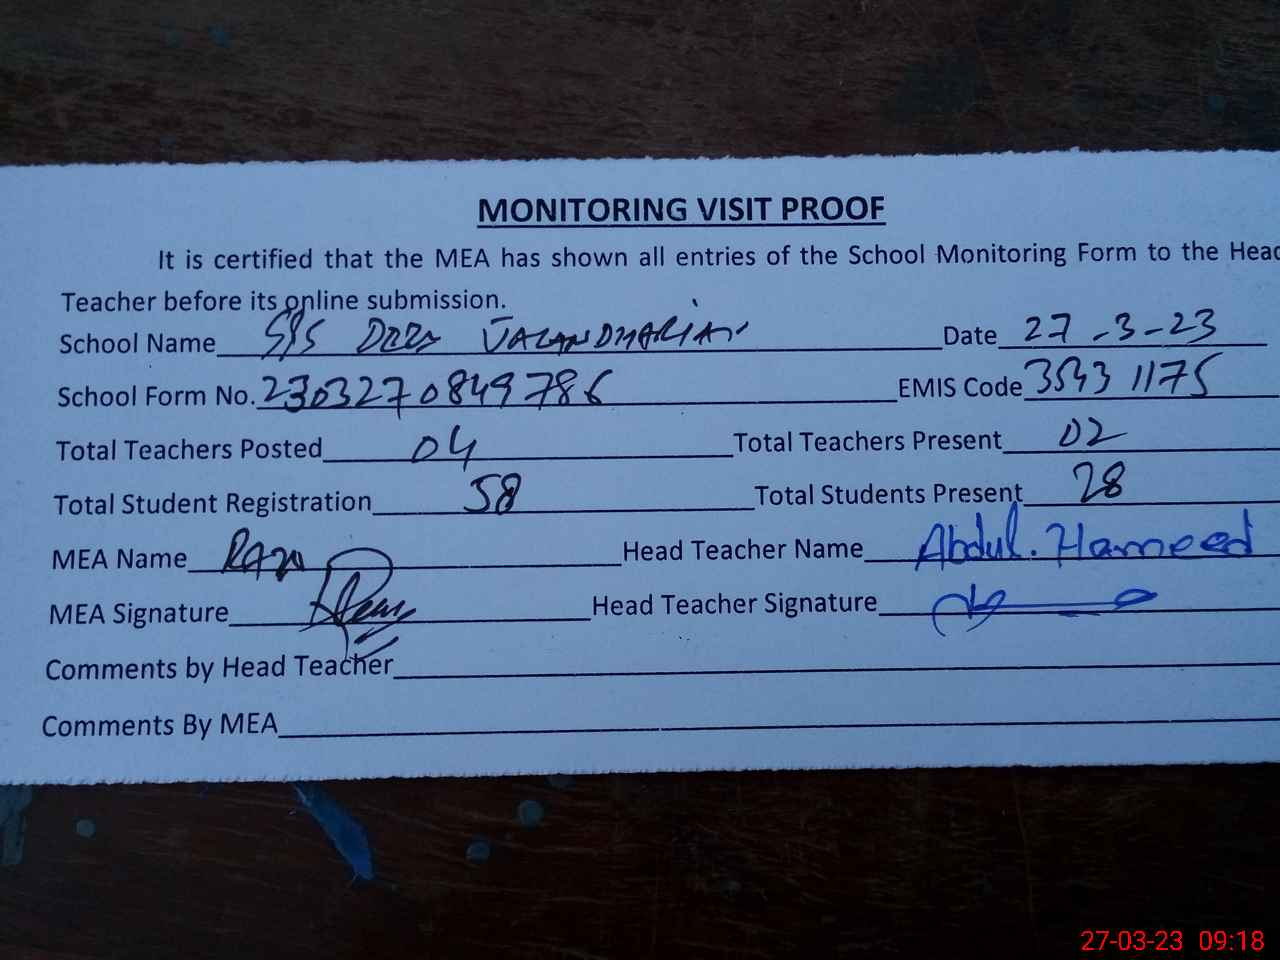 MONITORING VISIT PROOF
It is certified that the MEA has shown all entries of the School Monitoring Form to the Head
Teacher before its online submission.
School Name DERA JALANDHARIAN Date 27-3-23
School Form No. 2303270849786 EMIS Code 35431175
Total Teachers Posted 04 Total Teachers Present 02
Total Student Registration 58 Total Students Present 28
MEA Name Head Teacher Name Abdul. Hameed
MEA Signature Head Teacher Signature
Comments by Head Teacher
Comments By MEA
27-03-23 09:18